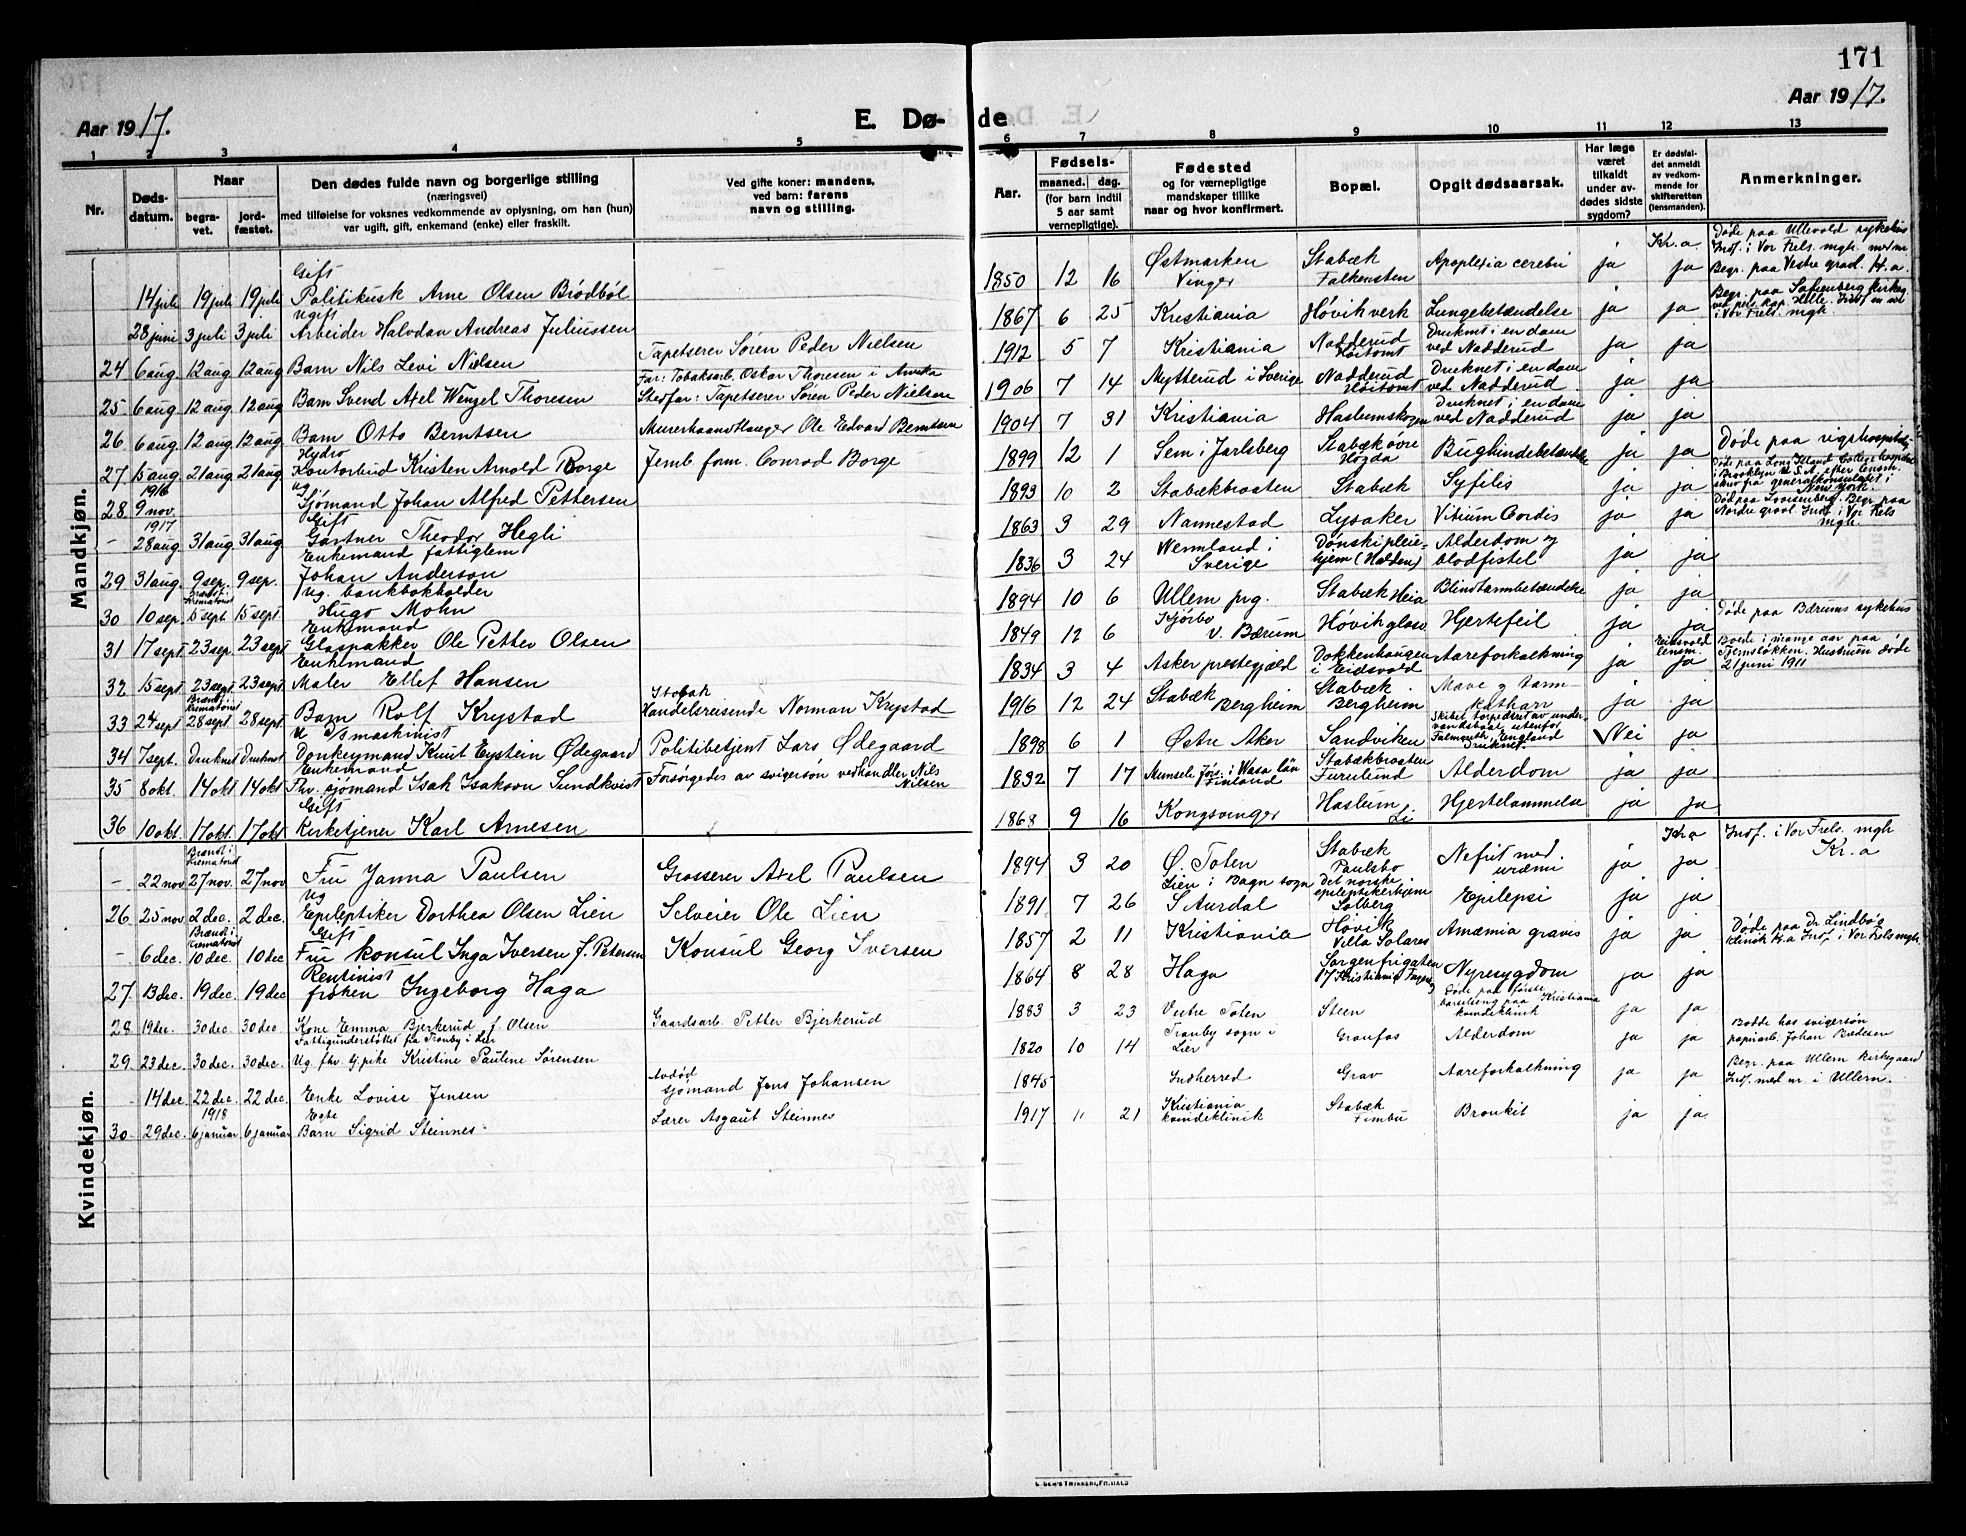 171
Aar 1917.
E. Døde
Aar 1917.
1 2 3 4 5 6 7 8 9 10 11 12 13
Nr.
Døds-datum.
Naar
begra-vet.
jord-fæstet.
Den dødes fulde navn og borgerlige stilling
(næringsvei)
med tilføielse for voksnes vedkommende av oplysning, om han (hun)
var ugift, gift, enkemand (enke) eller fraskilt.
Ved gifte koner: mandens,
ved barn: farens
navn og stilling.
Aar.
Fødsels-
maaned. dag.
(for barn indtil
5 aar samt
vernepligtige).
Fødested
og for værnepligtige
mandskaper tillike
naar og hvor konfirmert.
Bopæl.
Opgit dødsaarsak.
Har læge
været
tilkaldt
under av-
dødes sidste
sygdom?
Er dødsfal-
det anmeldt
av vedkom-
mende for
skifteretten
(lensmanden).
Anmerkninger.
Mandkjøn.
14 juli 19 juli 19 juli Gift Politikusk Arne Olsen Brødbøl 1850 12 16 Østmarken Vinger Stabæk Falkensten Apoplexia cerebri ja Kr.a. ja Døde paa Ullevold sykehus Indf. i Vor Frels. mgh. Begr. paa Vestre grav. Kr.a.
28 juni 3 juli 3 juli Ugift Arbeider Halvdan Andreas Juliussen 1867 6 25 Kristiania Høvik verk Lungebetændelse ja ja Begr. paa Sofienberg kirkeg. ved res. kap. Helle. i Vor Frels. mgh.
24 6 aug 12 aug 12 aug Barn Nils Levi Nielsen Tapetserer Søren Peder Nielsen 1912 5 7 Kristiania Nadderud Høitomt Druknet i en dam ved Nadderud ja ja
25 6 aug. 12 aug. 12 aug Barn Svend Axel Wengel Thoresen Far: Tobaksarb. Oskar Thoresen i Arvika Stedfar: Tapetserer Søren Peder Nielsen 1906 7 14 Mytterud i Sverige Nadderud Høitomt Druknet i en dam ved Nadderud. ja ja
26 6 aug. 12 aug 12 aug Barn Otto Berntsen Murerhaandlanger Ole Edvard Berntsen 1904 7 31 Kristiania Haslumskogen Druknet i en dam ved Nadderud ja ja
27 15 aug 21 aug 21 aug Hydro Kontorbud Kristen Arnold Borge Jernb form. Conrad Borge 1899 12 1 Sem i Jarlsberg Stabæk øvre Høgda Bughindebetændelse ja ja Døde paa rigshospitalet
28 1916 9 nov. Ug Sjømand Johan Alfred Pettersen 1893 10 2 Stabækbraaten Stabæk Syfilis ja ja Døde paa Long Island College hospital i Brooklyn U.S.A. efter lensm. skriv fra generalkonsulatet i New York.
- 1917 28 aug 31 aug 31 aug Gift Gartner Theodor Hegli 1863 3 29 Nannestad Lysaker Vitium Cordis ja ja Død paa Lovisenberg. Begr. paa Nordre gravl. Indf. i Vor Frels mgh.
29 31 aug. 9 sep. 9 sep. Enkemand fattiglem Johan Anderson 1836 3 24 Wermland i Sverige Dønski pleiehjem (Halden) Alderdom og blodfistel ja ja
30 10 sep. Brændt i krematoriet 15 sept 15 sept Ug. bankbokholder Hugo Mohn 1894 10 6 Ullern prg. Stabæk Heia Blindtarmbetændelse ja ja
31 17 sept 23 sep. 23 sept Enkemand Glaspakker Ole Petter Olsen 1849 12 6 Kjørbo V. Bærum Høvik glasv Hjertefeil ja ja Døde paa Bærums sykehus
32 15 sept. 23 sept 23 sept Enkemand Maler Ellef Hansen 1834 3 4 Asker prestegjæld Dokkenhaugen i Eidsvold Aareforkalkning ja Eidsvold lensm. ja Boede i mange aar paa Jernsløkken. Hustrum døde 21 juni 1911
33 24 sept Brændt i krematoriet 28 sept 28 sept Barn Rolf Krystad Stabæk Handelsreisende Norman Krystad 1916 12 24 Stabæk Bergheim Stabæk Bergheim Mave og tarmkatharr ja ja
34 7 sept. Druknet Druknet U D/S maskinist Donkeymand Knut Eystein Ødegaard Politibetjent Lars Ødegaard 1898 6 1 Østre Aker Sandviken Skibet torpedert av undervandsbaat utenfor Falmouth, England Druknet. Nei ja
35 8 okt. 14 okt 14 okt Enkemand Fhv. sjømand Isak Isakson Sundkvist Forsørgedes av svigersøn vedhandler Nils Nilsen 1832 7 17 Munsele för. i Wasa län Finland Stabækbraaten Furulund Alderdom ja ja
36 10 okt. 17 okt. 17 okt Gift Kirketjener Karl Arnesen 1868 9 16 Kongsvinger Haslum Li Hjertelammelse ja ja
Kvindekjøn.
- 22 nov Brændt i krematoriet 27 nov. 27 nov Fru Janna Paulsen Grosserer Axel Paulsen 1894 3 20 Ø. Toten Stabæk Paulsbo Nefrit med uræmi ja Kr.a ja Indf. i Vor Frels. mgh Kr.a
26 25 nov 2 dec. 2 dec. Ug Epileptiker Dorthea Olsen Lien Selveier Ole Lien 1891 7 26 Lien i Bagn sogn S Aurdal Det norske epileptikerhjem Solberg Epilepsi ja ja
- 6 dec. Brændt i krematoriet 10 dec. 10 dec Gift Fru konsul Inga Iversen f. Petersen Konsul Georg Iversen 1857 2 11 Kristiania Høvik Villa Solares Anæmia gravis ja ja Døde paa Dr Lindbøe klinik Kr.a Indf. i Vor Frels mgh.
27 13 dec. 19 dec. 19 dec Rentinist frøken Ingeborg Haga 1864 8 28 Haga Sorgenfrigaten 17 Kristiania Nyresygdom ja ja
28 19 dec. 30 dec. 30 dec. Kone Emma Bjerkerud f. Olsen Gaardsarb. Petter Bjerkerud 1883 3 23 Vestre Toten Steen Døde paa føiste barselseng paa Kristiania kvindeklinik ja ja
29 23 dec. 30 dec. 30 dec. Fattigunderstøttet fra Tranby i Lier Ug. fhv tjpike Kristine Pauline Sørensen 1820 10 14 Tranby sogn i Lier Granfos Alderdom ja ja Bodde hos svigersøn papirarb. Johan
- 14 dec. 22 dec 22 dec. Enke Lovise Jensen Avdød Sjømand Jens Johansen 1845 Indherred Grav Aareforkalkning ja ja Begr. paa Ullern kirkegaard Indf. med nr. i Ullern.
30 29 dec. 1918 6 januar 6 januar Egte Barn Sigrid Steinnes Lærer Asgaut Steinnes 1917 11 21 Kristiania kvindeklinik Stabæk Fimbu Bronkit ja ja